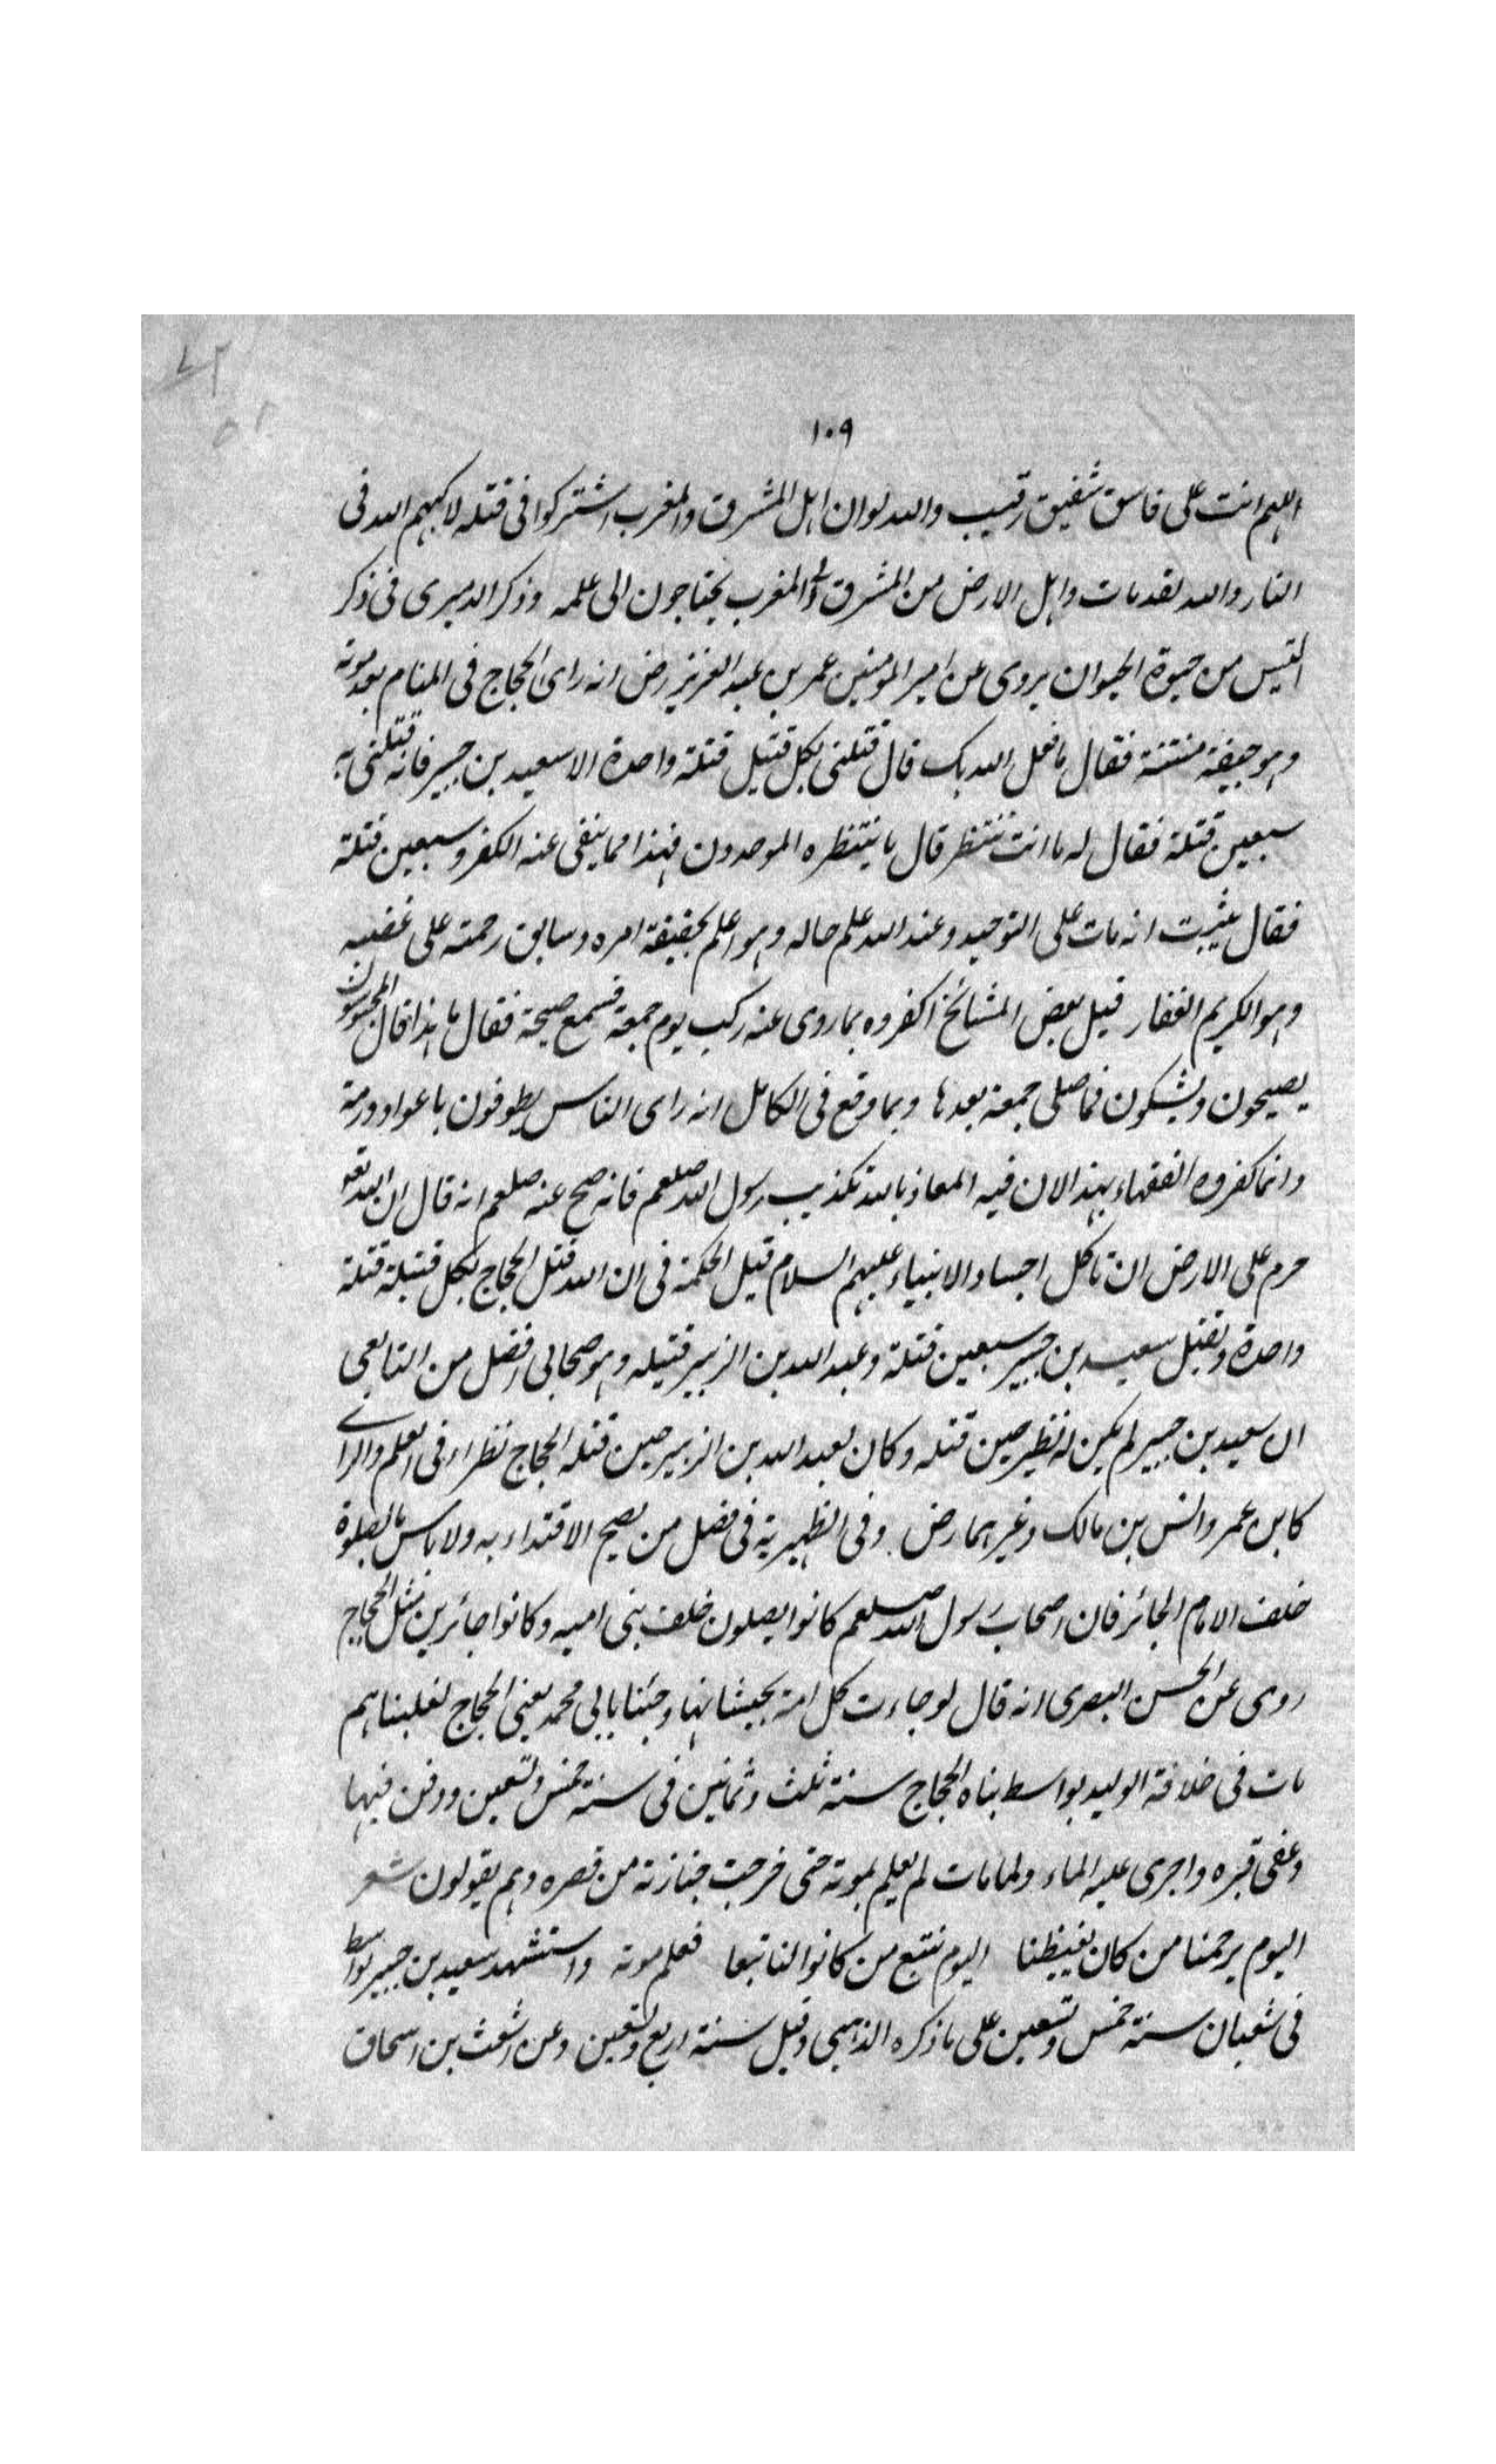 ١٠٩
اللهم انت على فاسق ثقيف رقيب والله لو ان اهل المشرق والمغرب اشتركوا فى قتله لاكبهم الله فى
النار والله لقد مات واهل الارض من المشرق الى المغرب يحتاجون الى علمه وذكر الدميرى فى ذكر
التيس من حيوة الحيوان يروى عن امير المومنين عمر بن عبد العزيز رض انه راى الحجاج فى المنام بعد موته
وهو جيفة منتنة فقال ما فعل الله بك قال قتلنى بكل قتيل قتلة واحدة الا سعيد بن جبير فانه قتلنى به
سبعين قتلة فقال له ما انت تنتظر قال ما ينتظره الموحدون فهذا مما ينفى عنه الكفر وسبعين قتلة
فقال يثبت انه مات على التوحيد وعند الله علم حاله وهو اعلم بحقيقة امره وسابق رحمته على غضبه
وهو الكريم الغفار قيل بعض المشائخ اكفروه بما روى عنه ركب يوم جمعة فسمع صيحة فقال ما هذا قال المحبوسون
يصيحون ويشكون فما صلى جمعة بعدها وبما وقع فى الكامل انه راى الناس يطوفون باعواد ورمة
وانما كفروه الفقهاء بهذا لان فيه المعاذ بالله تكذيب رسول الله صلعم فانه صح عنه صلعم انه قال ان الله تعو
حرم على الارض ان تاكل اجساد الانبياء عليهم السلام قيل الحكمة فى ان الله قتل الحجاج بكل قتيلة قتلة
واحدة وبقتل سعيد بن جبير سبعين قتلة وعبد الله بن الزبير قتيله وهو صحابى افضل من التابعى
ان سعيد بن جبير لم يكن له نظير حين قتله وكان لعبد الله بن الزبير حين قتله الحجاج نظراء فى العلم والراى
كابن عمر وانس بن مالك وغيرهما رض وفى الظهيرية فى فصل من يصح الاقتداء به ولا باس بالصلوة
خلف الامام الجائر فان اصحاب رسول الله صلعم كانوا يصلون خلف بنى اميه وكانوا جائرين مثل الحجاج
روى عن الحسن البصرى انه قال لو جاءت كل امة بخبيثاتها وجئنا بابى محمد يعنى الحجاج لغلبناهم
مات فى خلافة الوليد بواسط بناه الحجاج سنة ثلث وثمانين فى سنة خمس وتسعين ودفن فيها
وعفى قبره واجرى عليه الماء ولما مات لم يعلم بموته حتى خرجت جنازته من قصره وهم يقولون شعر
اليوم يرحمنا من كان يغيظنا اليوم نتبع من كانوا لنا تبعا فعلم موته واستشهد سعيد بن جبير بواسط
فى شعبان سنة خمس وتسعين على ما ذكره الذهبى وقيل سنة اربع وتسعين وعن اشعث بن اسحاق